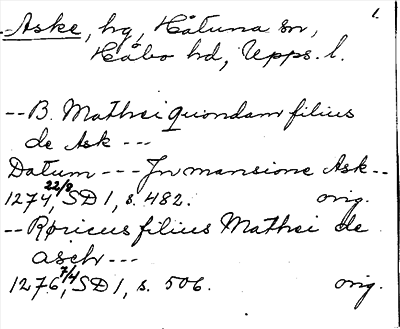 1.
Aske, hg, Håtuna sn,
Håbo hd, Upps. l.
-- B. Mathei quondam filius
de Ask ---
Datum --- In mansione Ask --
1274 22/8, SD 1, s. 482. orig.
-- Røricus filius Mathei de
aschr ---
1276 7/4, SD 1, s. 506. orig.